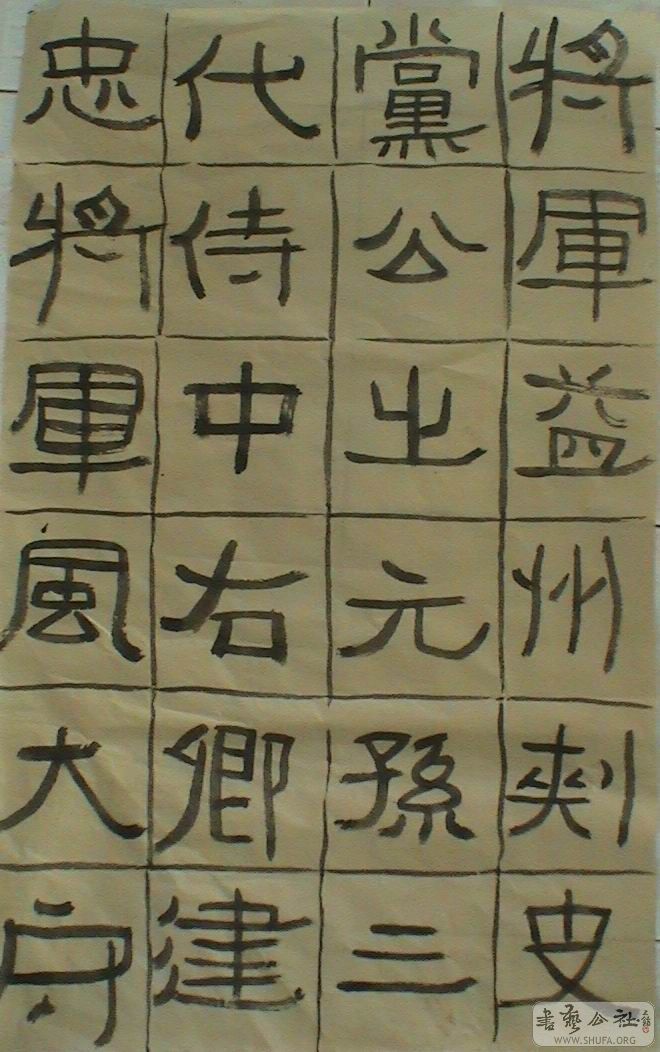 將軍益州刾史
黨公之元孫三
代侍中右卿建
忠將軍風大守
書藝公社
WWW.SHUFA.ORG